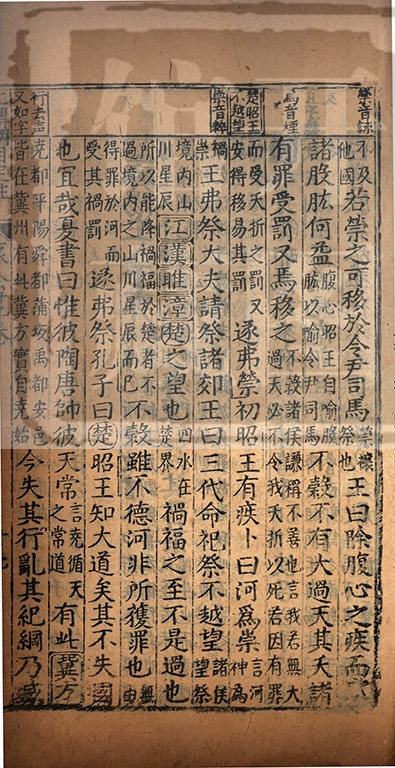 禜音詠
不及他國若禜之可移於令尹司馬禜禳祭也王曰除腹心之疾而
諸股肱何益腹心昭王自喻股肱以喻令尹司馬不穀不有大過天其夭諸
焉音煙
有罪受罰又焉移之不穀諸侯謙稱不善也言我若無大過天必不令我夭折以死若因有罪
楚昭王不越望
而受夭折之罰又安得移易其罰遂弗禜初昭王有疾卜曰河爲祟言河神爲
祟音粹
禍祟王弗祭大夫請祭諸郊王曰三代命祀祭不越望諸侯望祭
境內山川星辰江漢睢漳楚之望也四水在楚界禍福之至不是過也
所以能降禍福於楚者不過境內之山川星辰而已不穀雖不德河非所獲罪也無由
得罪於河而受其禍罰遂弗祭孔子曰楚昭王知大道矣其不失國
也宜哉夏書曰惟彼陶唐帥彼天常言堯循天之常道有此冀方
行去聲又如字
堯都平陽舜都蒲坂禹都安邑皆在冀州有此冀方實自堯始今失其行亂其紀綱乃滅